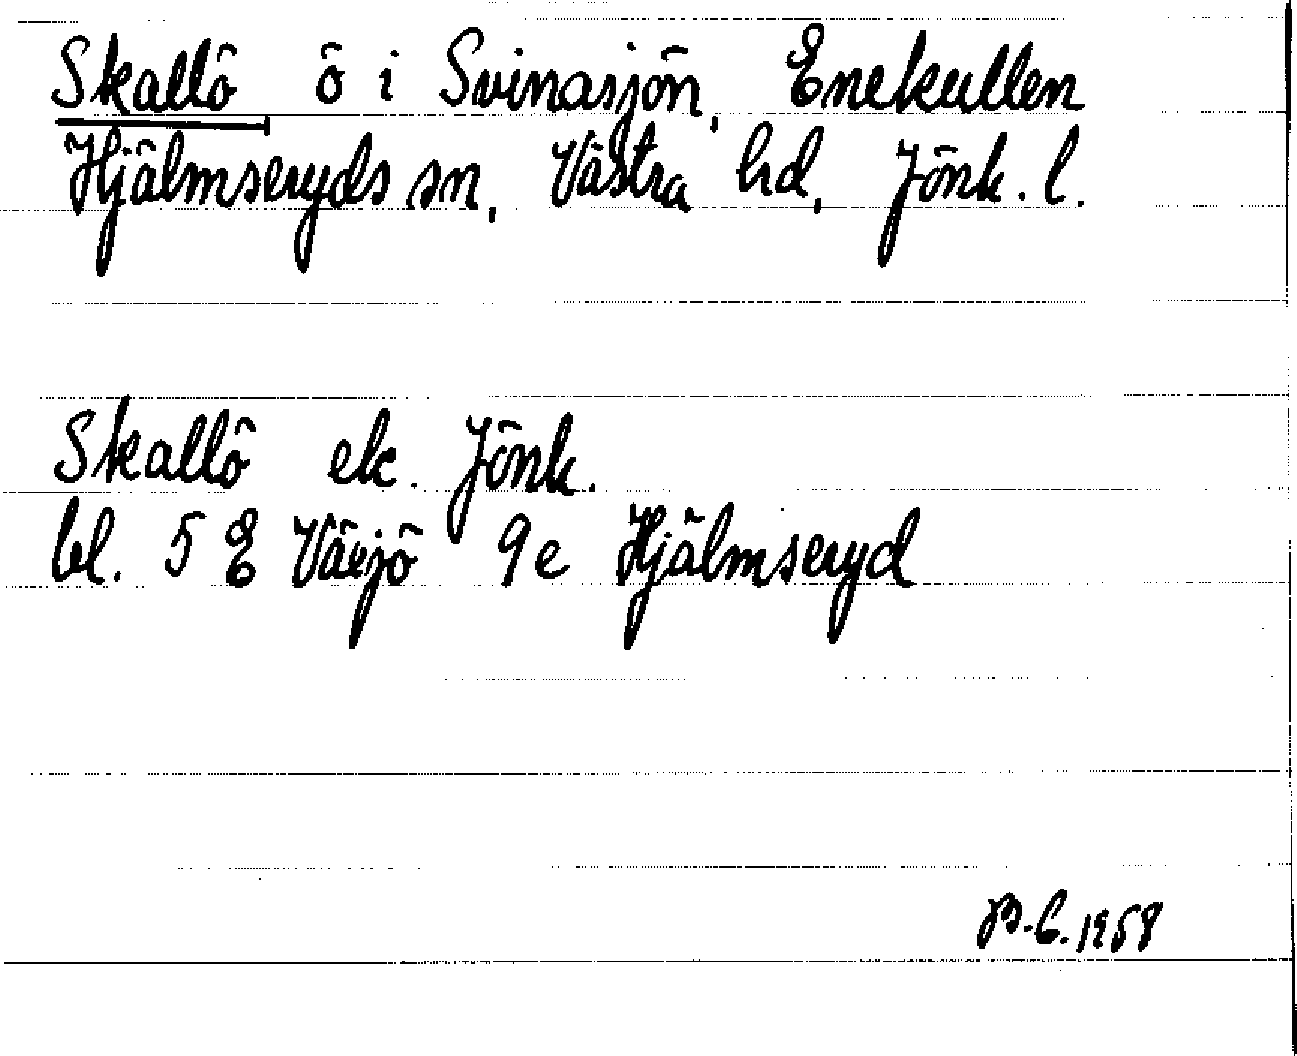 Skallö ö i Svinasjön, Enekullen
Hjälmseryds sn, Västra hd, Jönk. l.
Skallö ek. Jönk.
bl. 5 E Växjö 9e Hjälmseryd
B.E. 1958